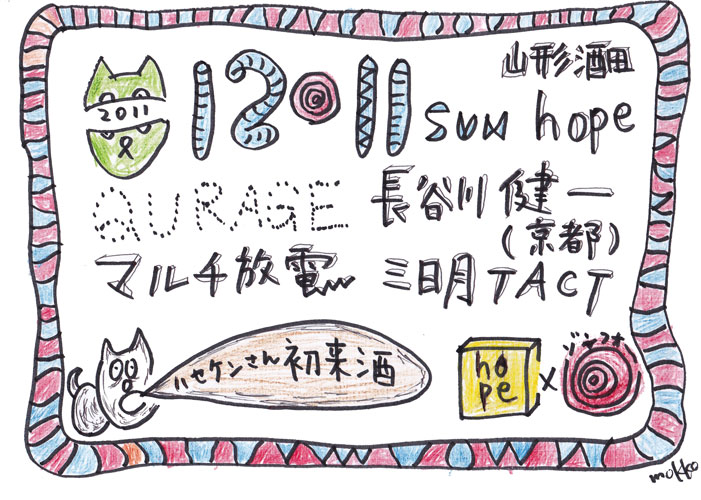 2011
12.11
山形酒田
sun hope
AURAGE
長谷川健一
(京都)
マルチ放電
三日月TACT
ハセケンさん初来酒
hope
x
mokko